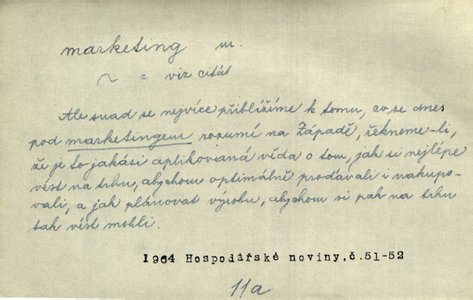 marketing m.
~ = viz citát
Ale snad se nejvíce přiblížíme k tomu, co se dnes
pod marketingem rozumí na Západě, řekneme-li,
že je to jakási aplikovaná věda o tom, jak si nejlépe
vést na trhu, abychom optimálně prodávali i nakupo-
vali, a jak plánovat výrobu, abychom si pak na trhu
tak vést mohli.
1964 Hospodářské noviny,č.51-52
11a